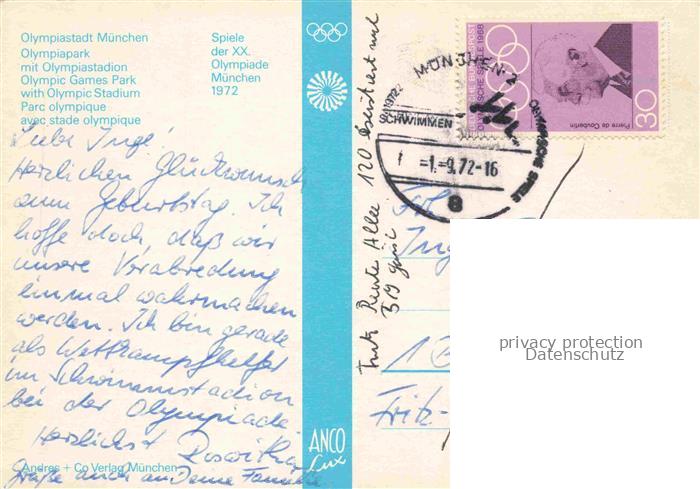 Olympiastadt München
Olympiapark
mit Olympiastadion
Olympic Games Park
with Olympic Stadium
Parc olympique
avec stade olympique
Spiele
der XX.
Olympiade
München
1972
Liebe Inge!
Herzlichen Glückwunsch
zum Geburtstag. Ich
hoffe doch, daß wir
unsere Verabredung
einmal wahrmachen
werden. Ich bin gerade
als Wettkampfhelfer
im Schwimmstadion
bei der Olympiade
Herzlichst Roswitha
Grüße auch an Deine Familie
Andres + Co Verlag München
ANCO
Lux
MÜNCHEN
1972
SCHWIMMEN
OLYMPISCHE SPIELE
-1.-9.72-16
8
DEUTSCHE BUNDESPOST
OLYMPISCHE SPIELE 1968
Pierre de Coubertin
30
Fritz Reuter Allee 120
Frl.
Ing
1 B
Fritz-
privacy protection
Datenschutz